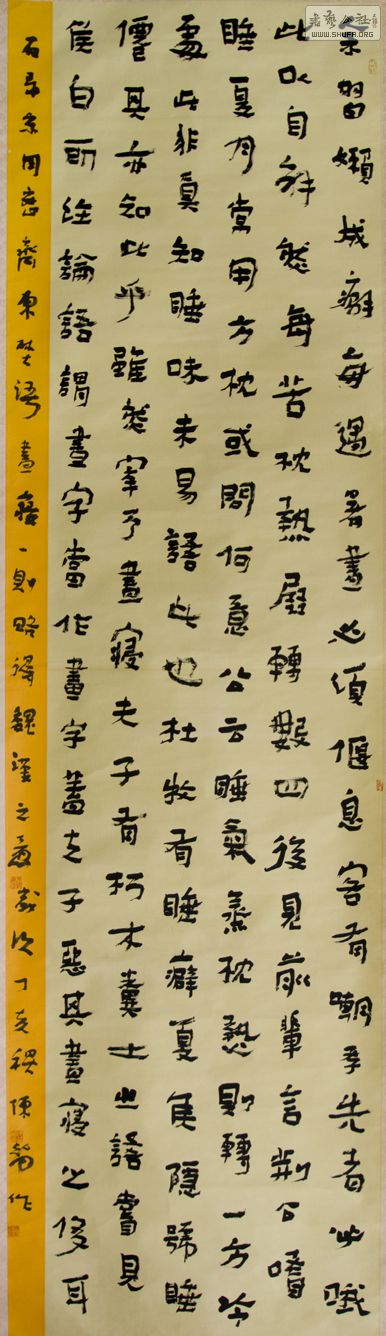 余習嬾成癖每遇暑晝必須偃息客有嘲孝先者必哦
此以自解然每苦枕熱展轉數四後見前輩言荆公嗜
睡夏月常用方枕或問何意公云睡氣蒸枕熱則轉一方冷
處此非真知睡味未易語此也杜牧有睡癖夏侯隱號睡
僊其亦知此乎雖然宰予晝寢夫子有朽木糞土之語嘗見
侯白所註論語謂晝字當作畫字蓋夫子惡其畫寢之侈耳
右录宋周密齊東埜語晝寢一則略得魏之意歲次丁亥秋陳作
書藝公社
WWW.SHUFA.ORG